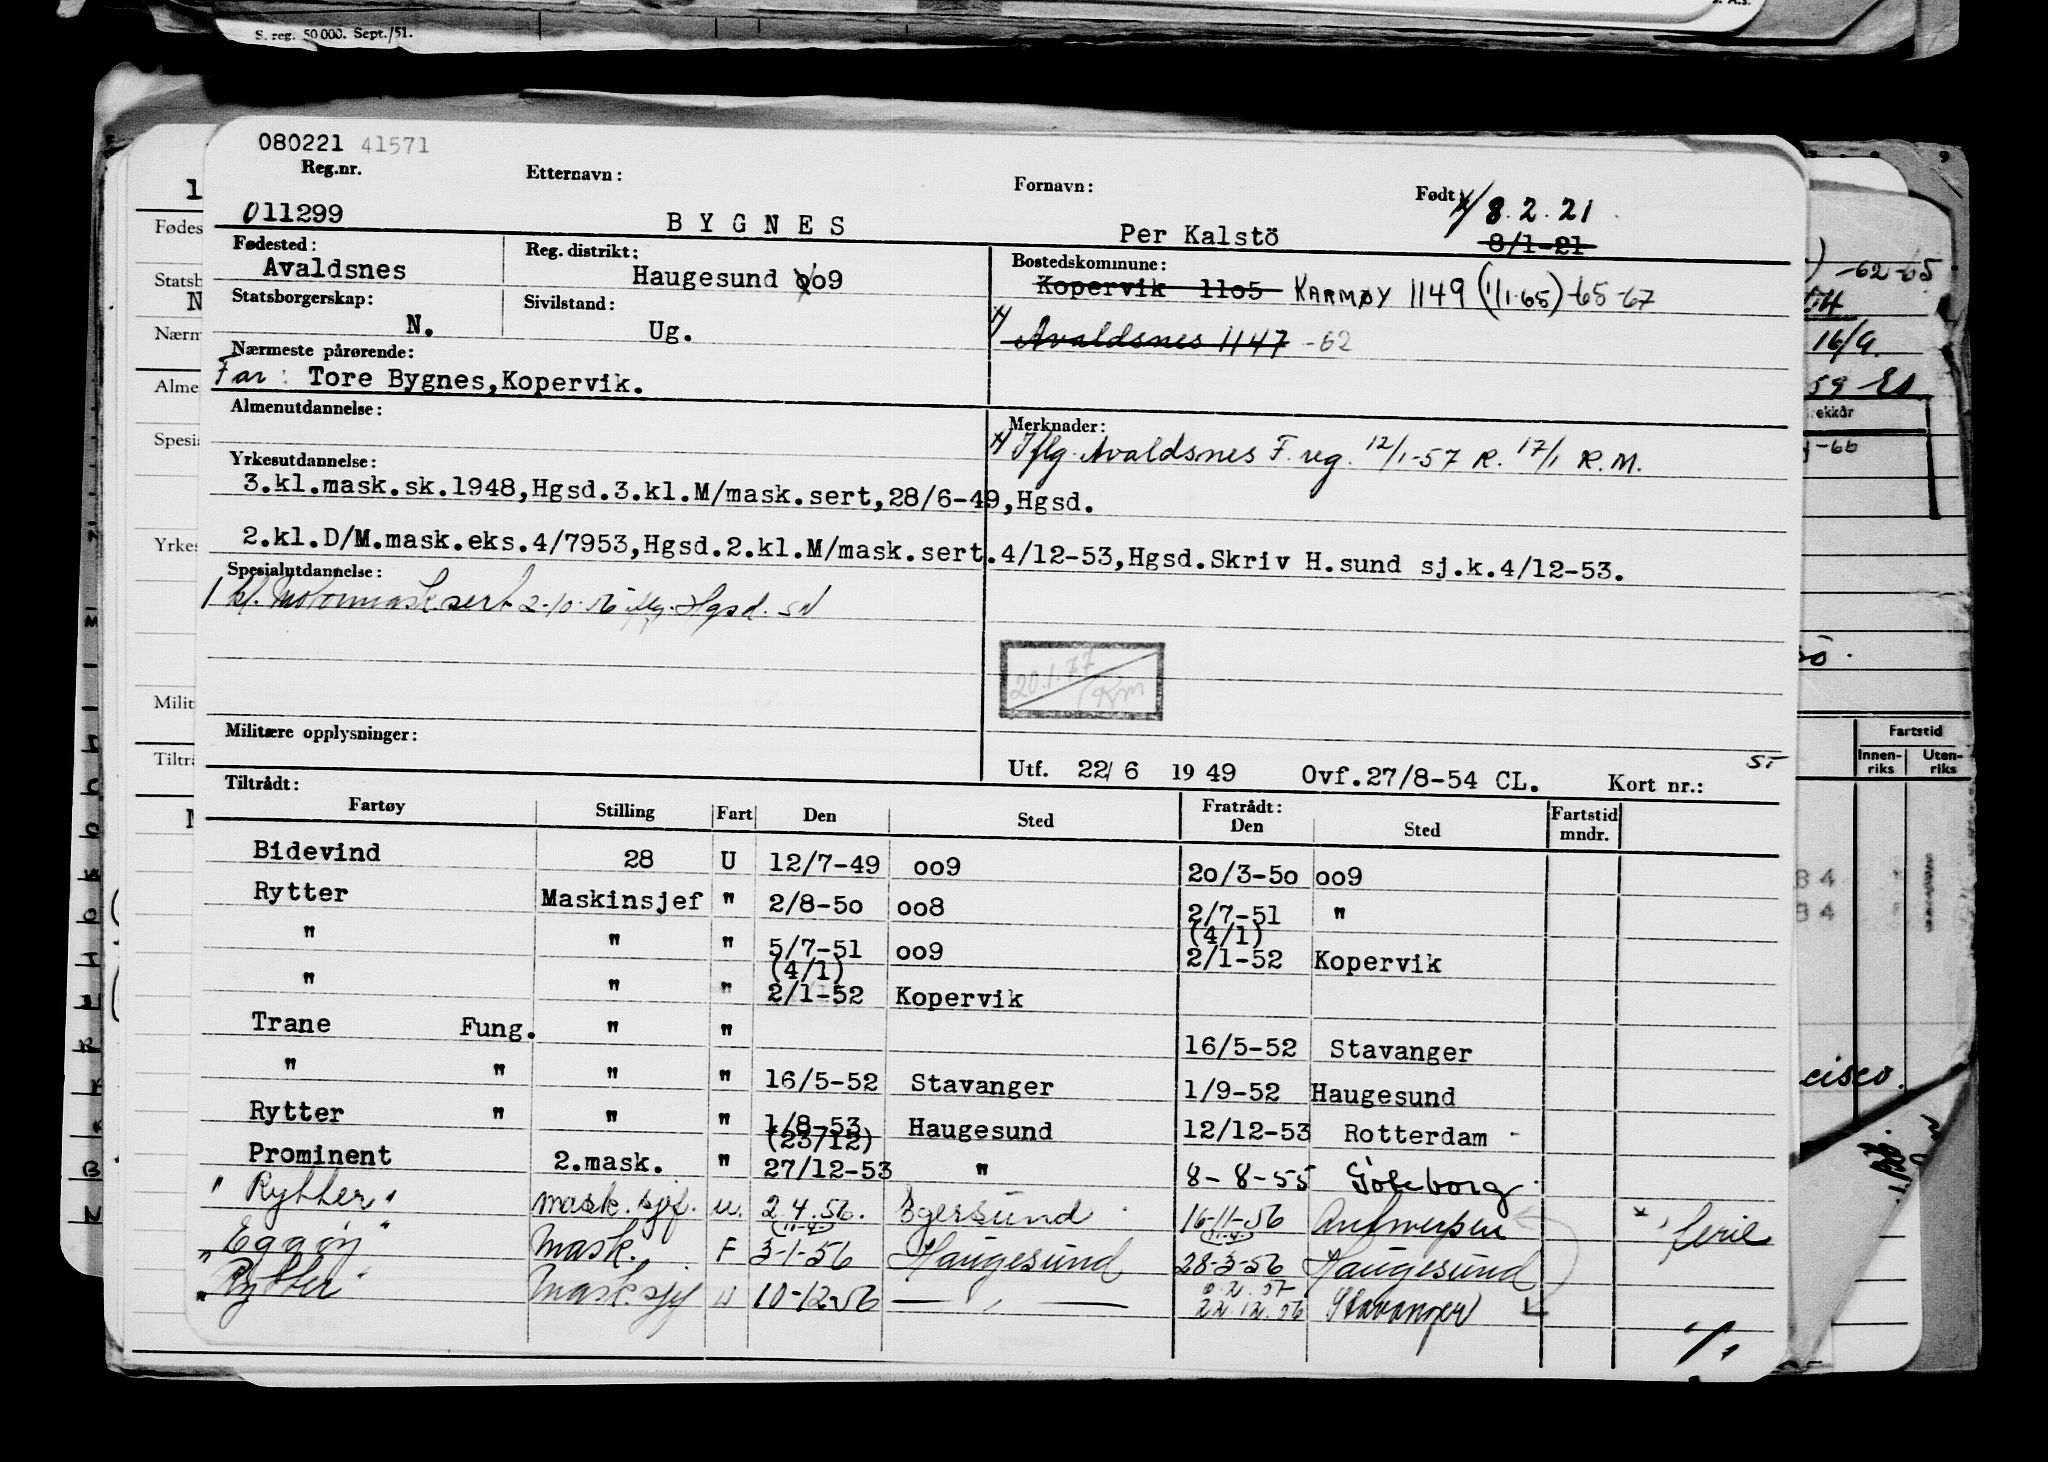 S. reg. 50 000. Sept./51.
080221 41571
Reg.nr. Etternavn: Fornavn: Født
011299 BYGNES Per Kalstö x/ 8.2.21
8/1-21
Fødested: Reg. distrikt: Bostedskommune:
Avaldsnes Haugesund oo9 Kopervik 11o5 KARMØY 1149 (1/1-65) -65-67
Statsborgerskap: Sivilstand:
N. Ug. x/ Avaldsnes 1147 -62
Nærmeste pårørende:
Far: Tore Bygnes,Kopervik.
Almenutdannelse: Merknader:
x/ Iflg. Avaldsnes F.reg. 12/1-57 R. 17/1 R.M.
Yrkesutdannelse:
3.kl.mask.sk.1948,Hgsd.3.kl.M/mask.sert,28/6-49,Hgsd.
2.kl.D/M.mask.eks.4/7953,Hgsd.2.kl.M/mask.sert.4/12-53,Hgsd.Skriv H.sund sj.k.4/12-53.
Spesialutdannelse:
1 kl. Motormask.sert 2-10-56 iflg. Hgsd. SN
20.1.77 Km
Militære opplysninger:
Utf. 22/6 1949 Ovf.27/8-54 CL. Kort nr.:
Tiltrådt: Fratrådt:
Fartøy Stilling Fart Den Sted Den Sted Fartstid mndr.
Bidevind 28 U 12/7-49 oo9 2o/3-5o oo9
Rytter Maskinsjef " 2/8-5o oo8 2/7-51 "
" " " 5/7-51 oo9 (4/1) 2/1-52 Kopervik
" " " (4/1) 2/1-52 Kopervik
Trane Fung. " " 16/5-52 Stavanger
" " " " 16/5-52 Stavanger 1/9-52 Haugesund
Rytter " " " 1/8-53 Haugesund 12/12-53 Rotterdam
Prominent 2.mask. " (23/12) 27/12-53 " 8-8-55 Göteborg
"Rytter" mask.sjef. u. 2.4.56. Egersund 16-11-56 Antwerpen * ferie
"Eggøy" Mask. F (11-4) 3-1-56 Haugesund (11-4) 28-3-56 Haugesund
"Rytter" Mask.sjef u 10-12-56 — " — 22.12.56 Stavanger
Fartstid
Innen-riks Uten-riks